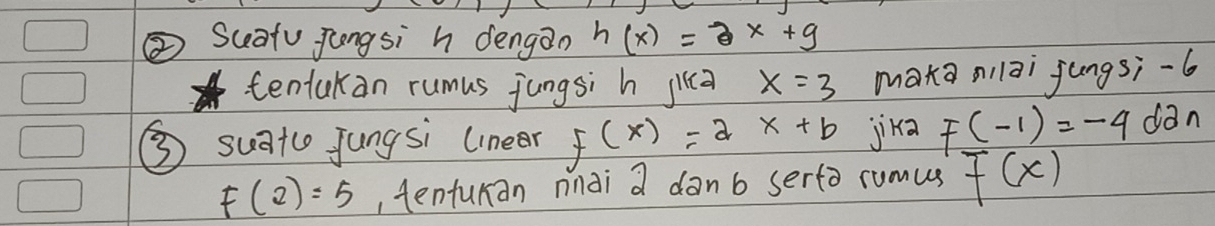 ② Suatu fungsi h dengan h(x) = ax + 9
tentukan rumus fungsi h jika x = 3 maka nilai fungsi -6
③ suatu fungsi linear f(x) = ax + b jika F(-1) = -4 dan
F(2) = 5, tentukan nilai a dan b serta rumus F(x)